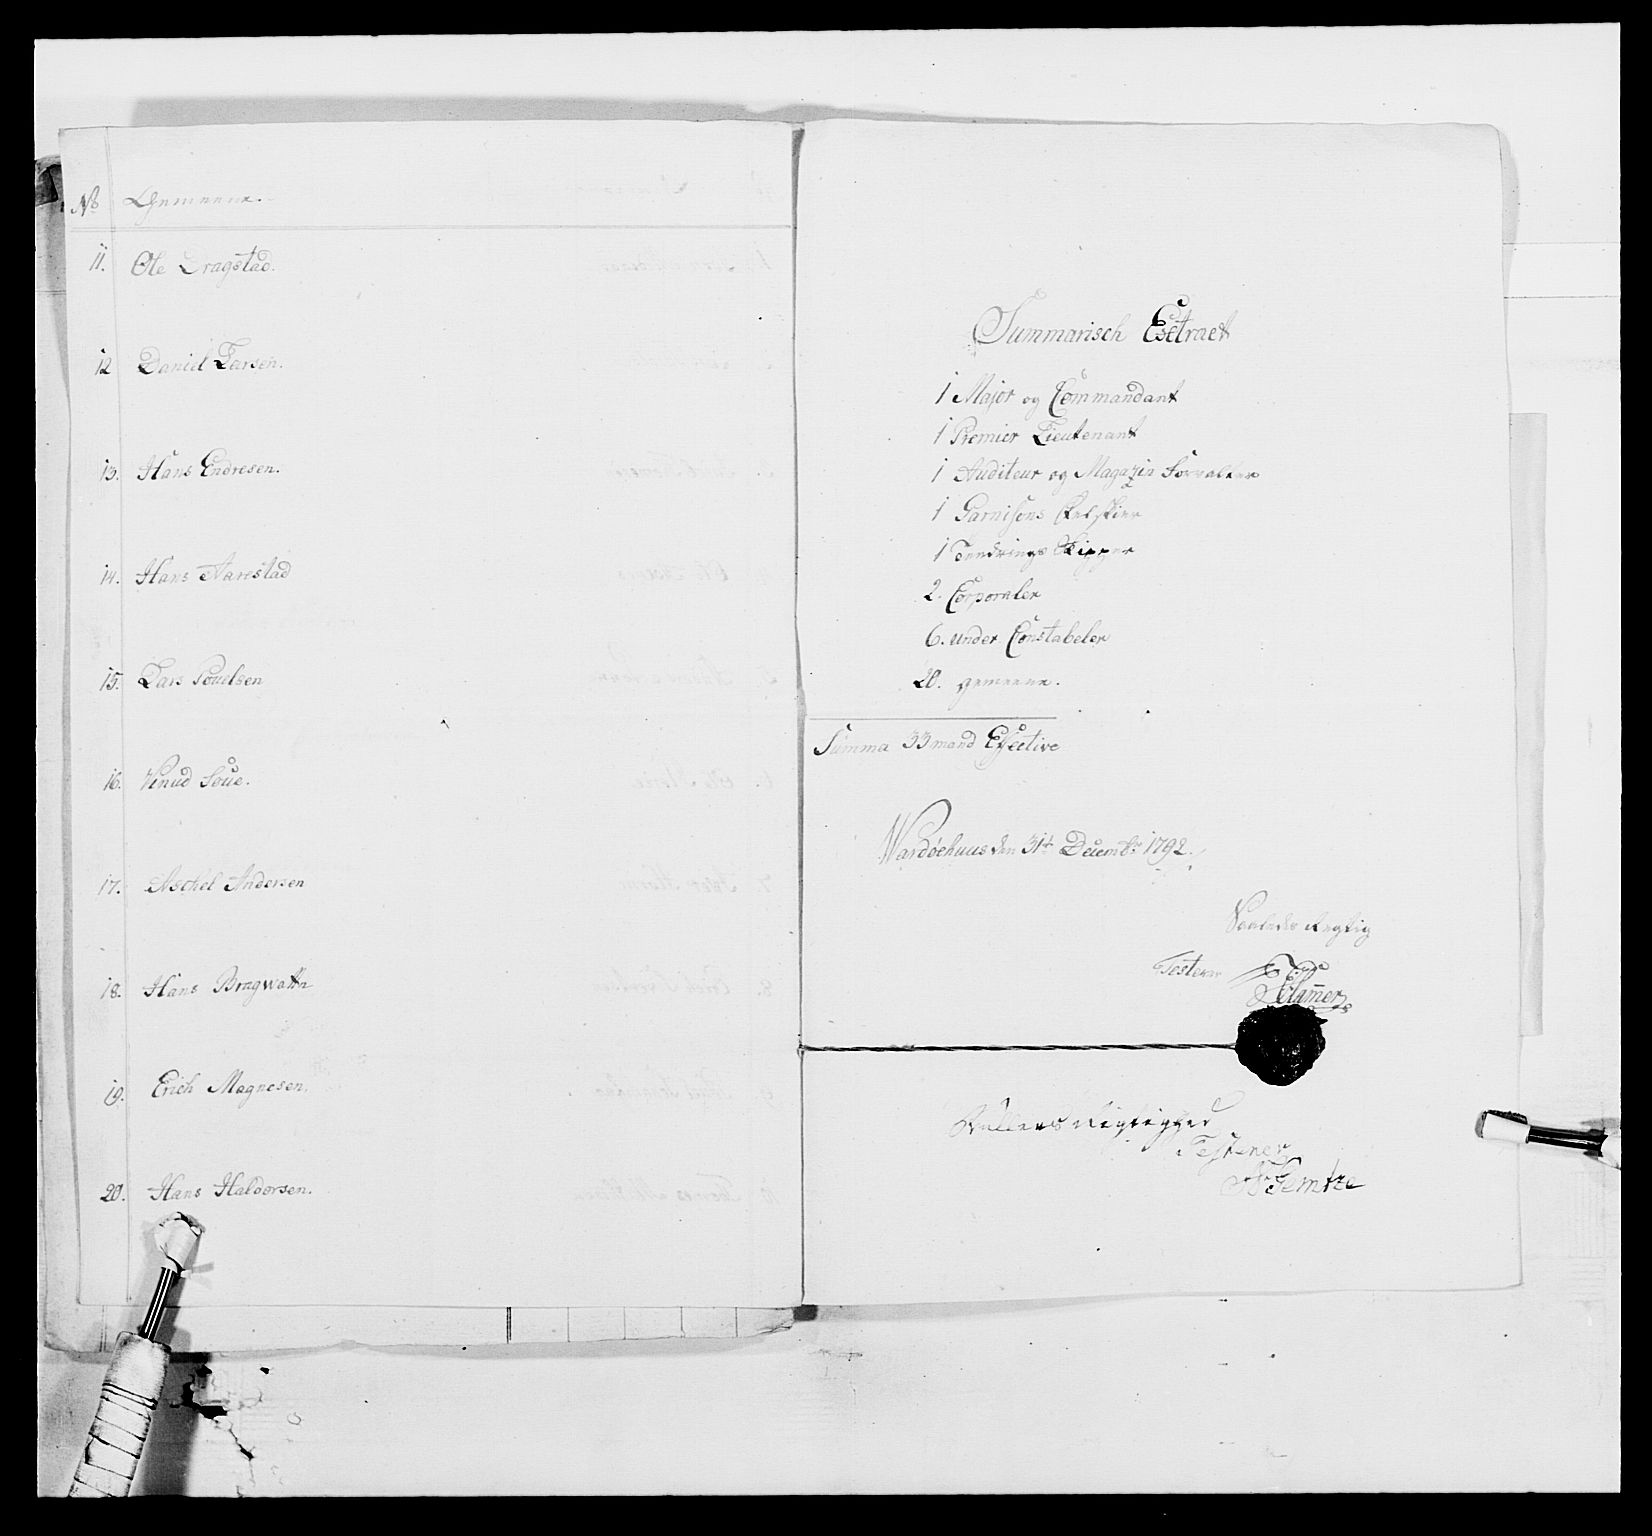 No Gemeene.
11. Ole Dragstad.
12 Daniel Larsen.
13. Hans Endresen.
14. Hans Aarestad
15. Lars Pouelsen
16. Knud Soue.
17. Aschel Andersen
18. Hans Bragwattn
19. Erich Magnesen.
20. Hans Haldorsen.
Summarisch Extract
1 Major og Commandant
1 Premier Lieutenant
1 Auditeur og Magazin Forvalter
1 Garnisons Feldskier
1 Tendrings Skipper
2. Corporaler
6. under Constabeler
20. gemeene.
Summa 33 mand Effective
Wardöehuus den 31te Decembr 1792.
Saaledes Rigtig
Testerer
Hammer
Rullens Rigtighed
Testerer